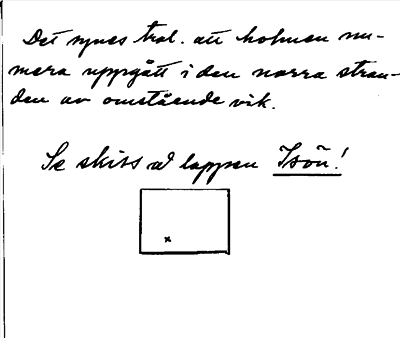 Det synes trol. att holmen nu-
mera uppgått i den norra stran-
den av omstående vik.
Se skiss å lappen Isön!